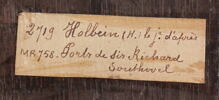 2719 Holbein (H.) le j: d'après
MR.758. Portr. de sir Richard
Southwel